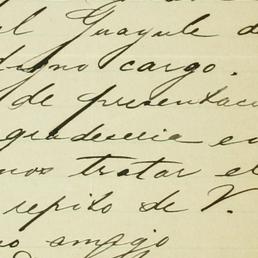 el Guayule d
digno cargo.
de presentac
gradeseria en
mos tratar el
repito de V.
no amigo